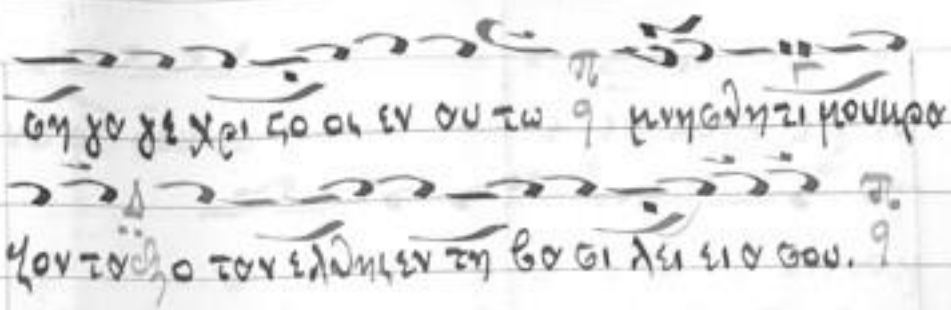 ση γα γε Χρι στο ος εν αυ τω μνησθητι μου κρα
ζον τα ο ταν ελθης εν τη βα σι λει ει α σου.